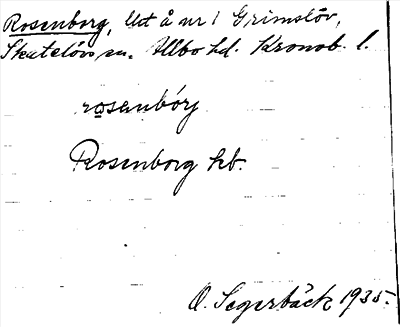 Rosenborg, Ut å nr 1 Grimslöv,
Skatelövs sn. Allbo hd. Kronob. l.
rosenbórj
Rosenborg hb.
O. Segerbäck 1935.